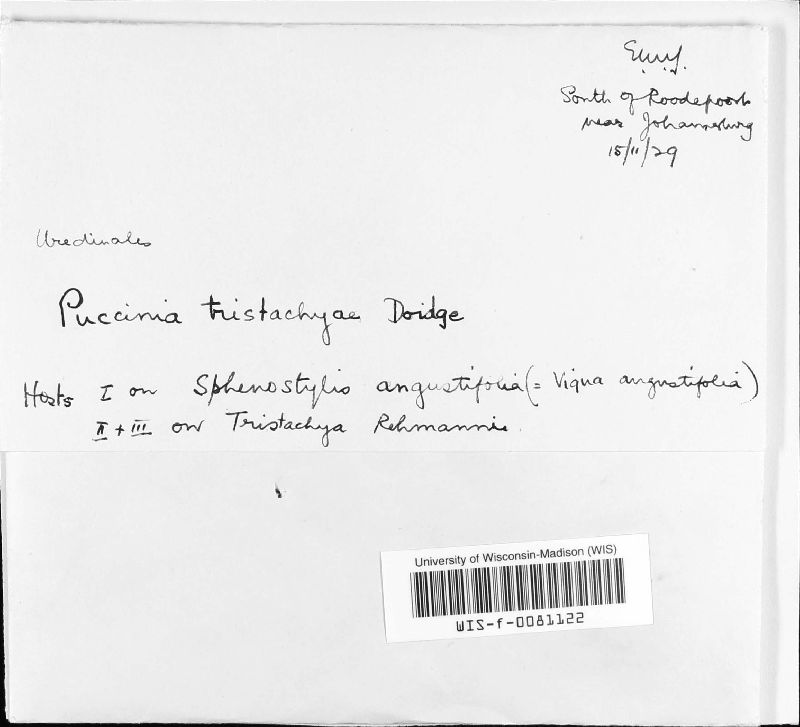 South of Roodepoort
near Johannesburg
15/11/29
Uredinales
Puccinia tristachyae Doidge
Hosts I on Sphenostylis angustifolia (= Vigna angustifolia)
II + III on Tristachya Rehmannii.
University of Wisconsin-Madison (WIS)
WIS-f-0081122